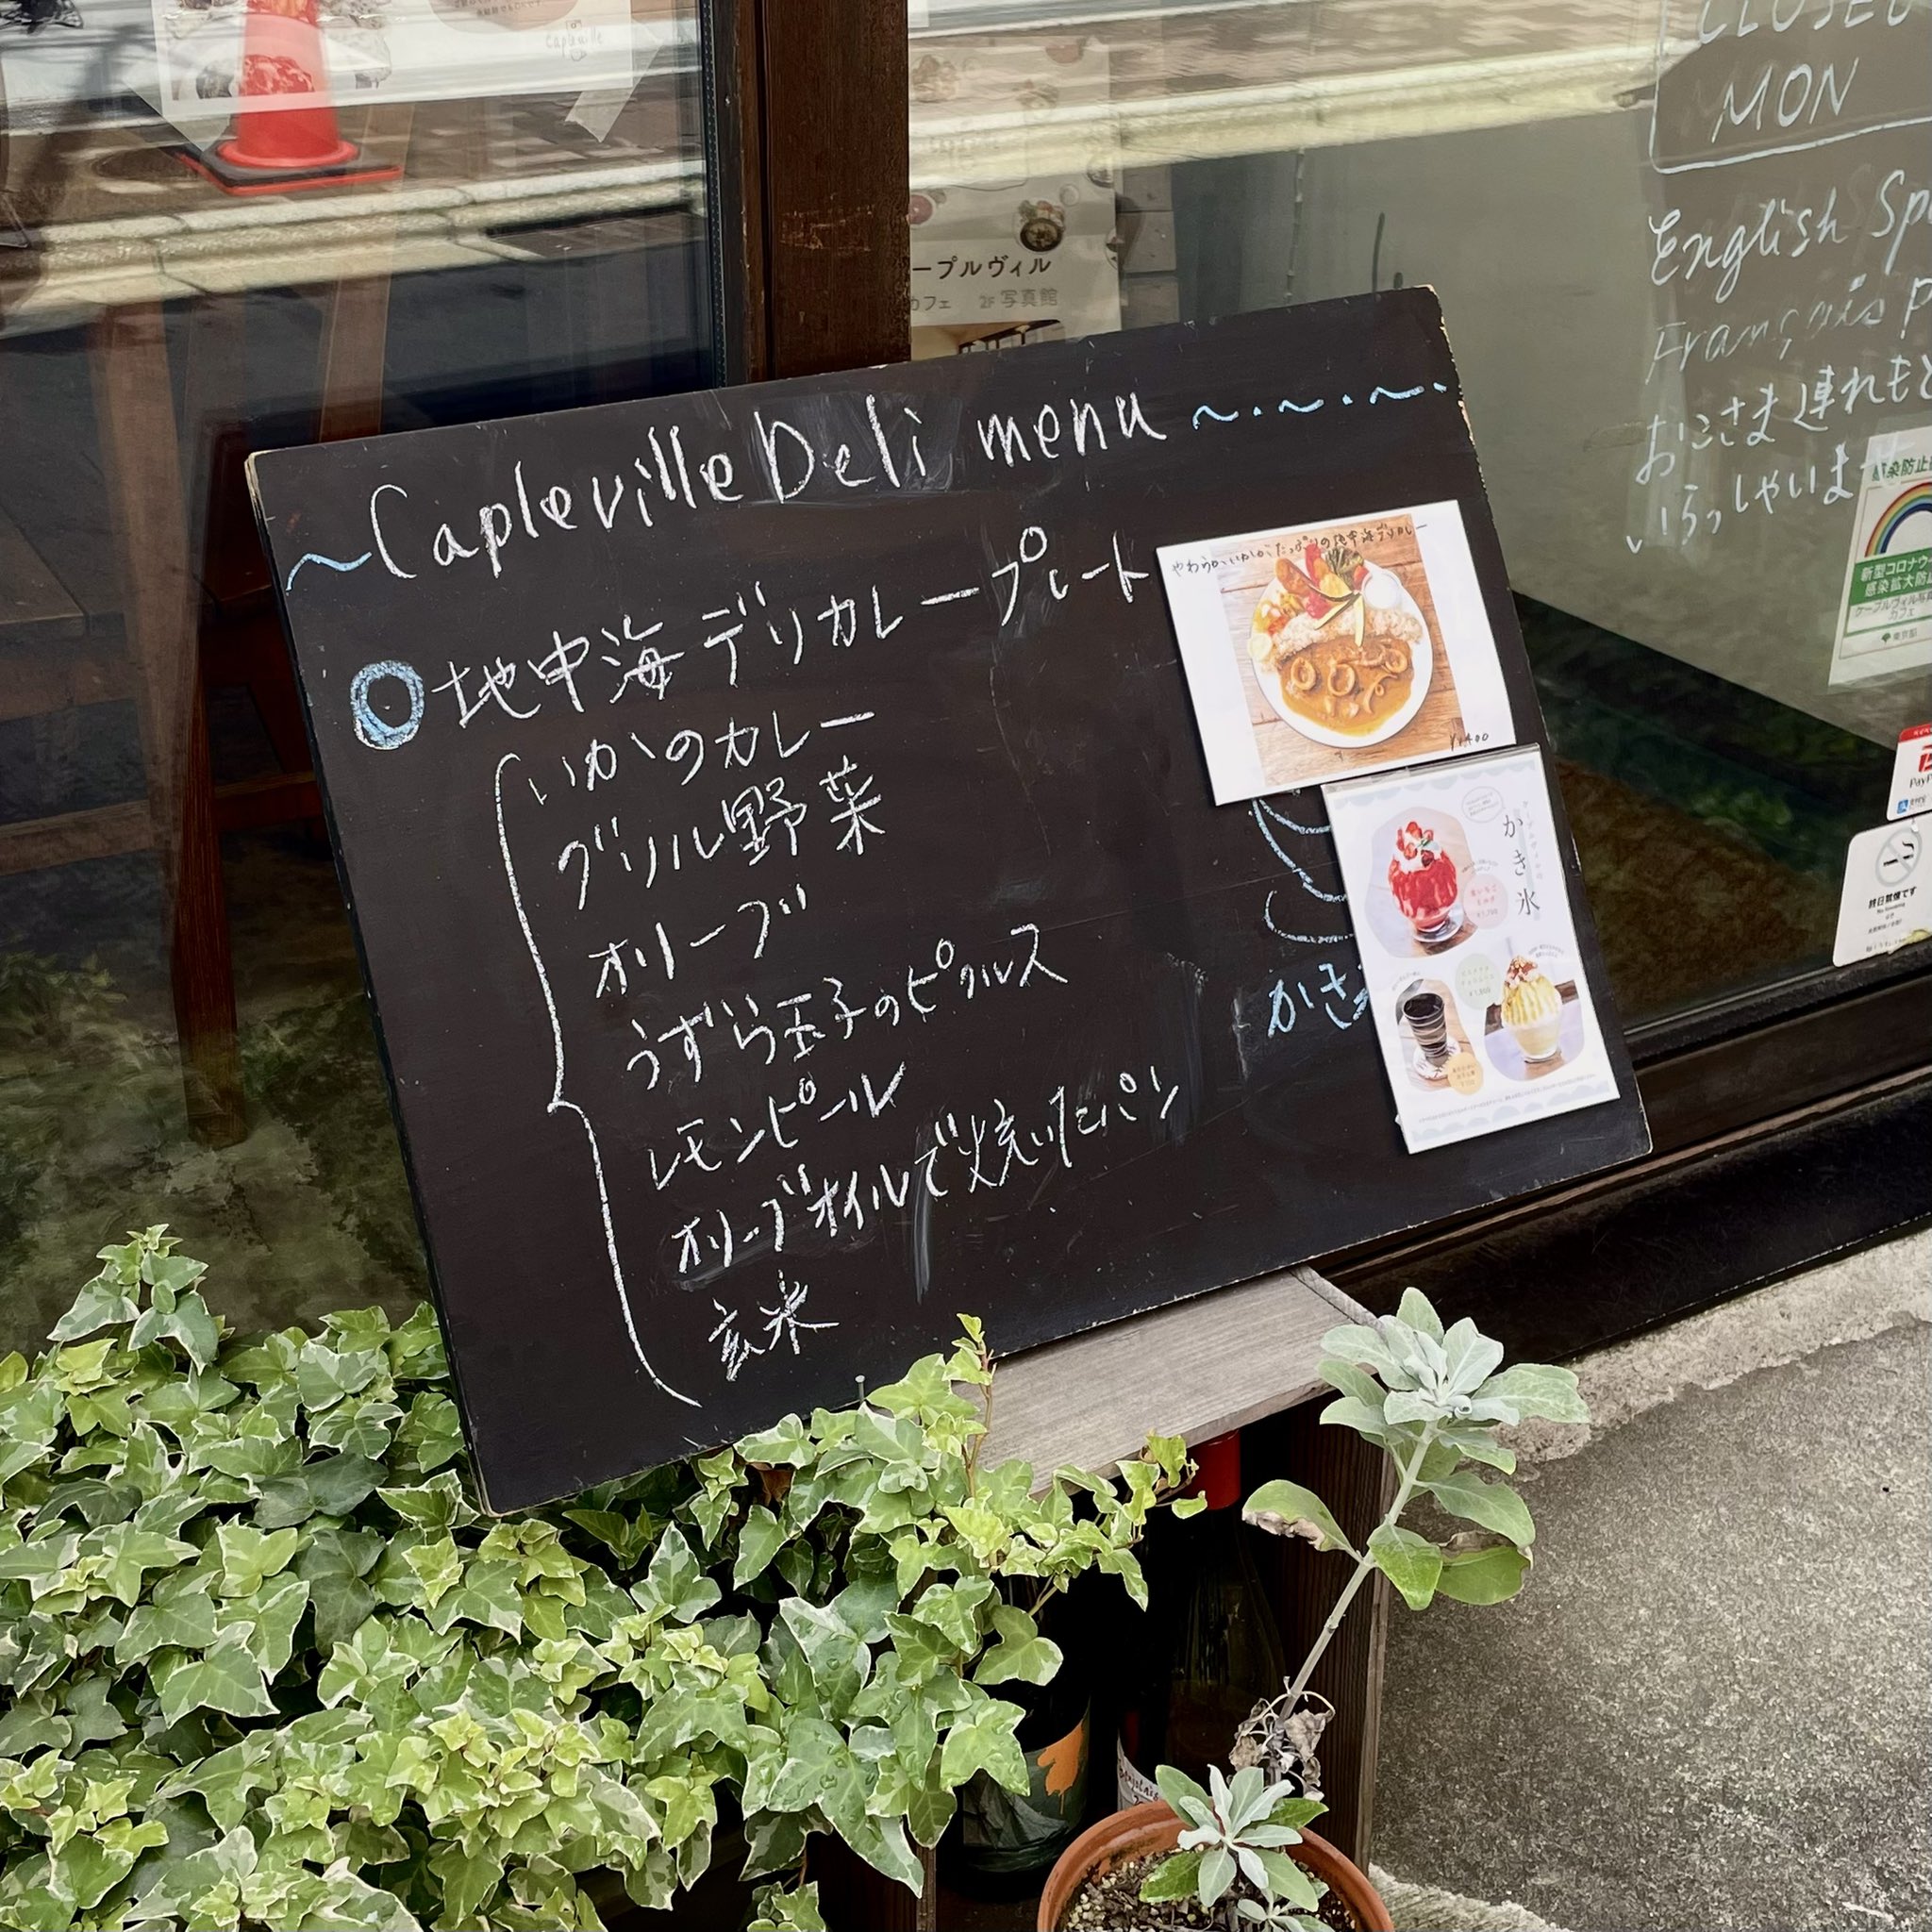 ~Capleville Deli menu~・~・~・
地中海デリカレープレート
いかのカレー
グリル野菜
オリーブ
うずら玉子のピクルス
レモンピール
オリーブオイルで焼いたパン
玄米
かき
やわらかいかがたっぷりの地中海デリカレー
かき氷
ープルヴィル
カフェ 2F 写真館
CLOSED
MON
English Sp
Français p
おこさま連れもど
いらっしゃいま
感染防止
新型コロナウ
感染拡大防
ケープルヴィル写真
カフェ
東京都
PayP
終日禁煙です
No Smoking